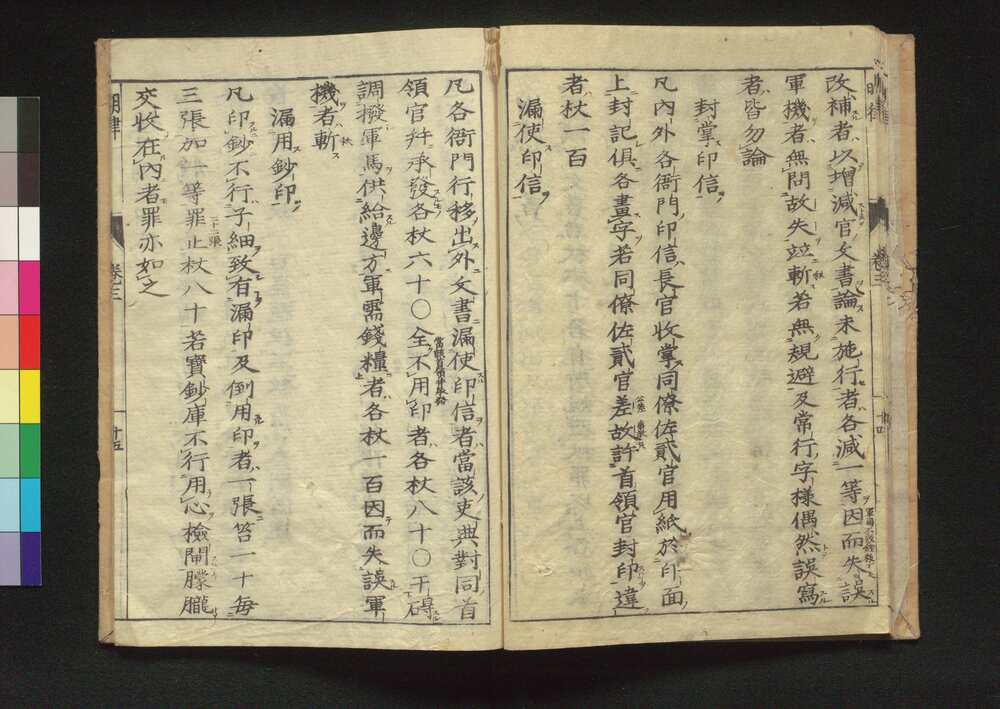 改補者以增減官文書論未施行者各減一等因而失誤
軍機者無問故失竝斬若無規避及常行字樣偶然誤寫
者皆勿論
封掌印信
凡內外各衙門印信長官收掌同僚佐貳官用紙於印面
上封記俱各畫字若同僚佐貳官差故許首領官封印違
者杖一百
漏使印信
卷三
凡各衙門行移出外文書漏使印信者當該吏典對同首
領官幷承發各杖六十〇全不用印者各杖八十〇干碍
調撥軍馬供給邊方軍需錢糧者各杖一百因而失誤軍
機者斬
漏用鈔印
凡印鈔不行子細致有漏印及倒用印者一張笞一十每
三張加一等罪止杖八十若寶鈔庫不行用心檢閘朦朧
交收在內者罪亦如之
明律
卷三
十五